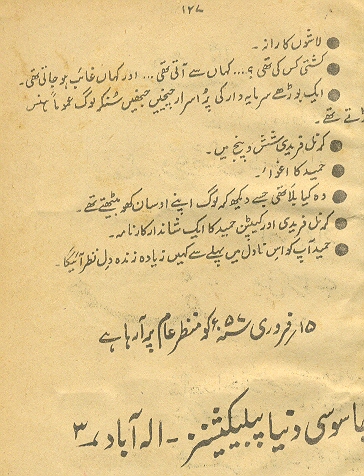 ۱۲۷
● لاشوں کا راز۔
● کشتی کس کی تھی؟... کہاں سے آتی تھی... اور کہاں غائب ہو جاتی تھی۔
● ایک بوڑھے سرمایہ دار کی پُراسرار چیخیں جنھیں سُنکر لوگ عموماً ہنس
تے تھے۔
● کرنل فریدی شش و پنج میں۔
● حمید کا اغوا۔
● وہ کیا بلا تھی جسے دیکھ کر لوگ اپنے اوسان کھو بیٹھتے تھے۔
● کرنل فریدی اور کیپٹن حمید کا ایک شاندار کارنامہ۔
● حمید آپ کو اس ناول میں پہلے سے کہیں زیادہ زندہ دِل نظر آئیگا۔
۱۵ر فروری ۵۷ء کو منظرِ عام پر آ رہا ہے
جاسوسی دنیا پبلیکیشنز۔ الہ آباد ۳